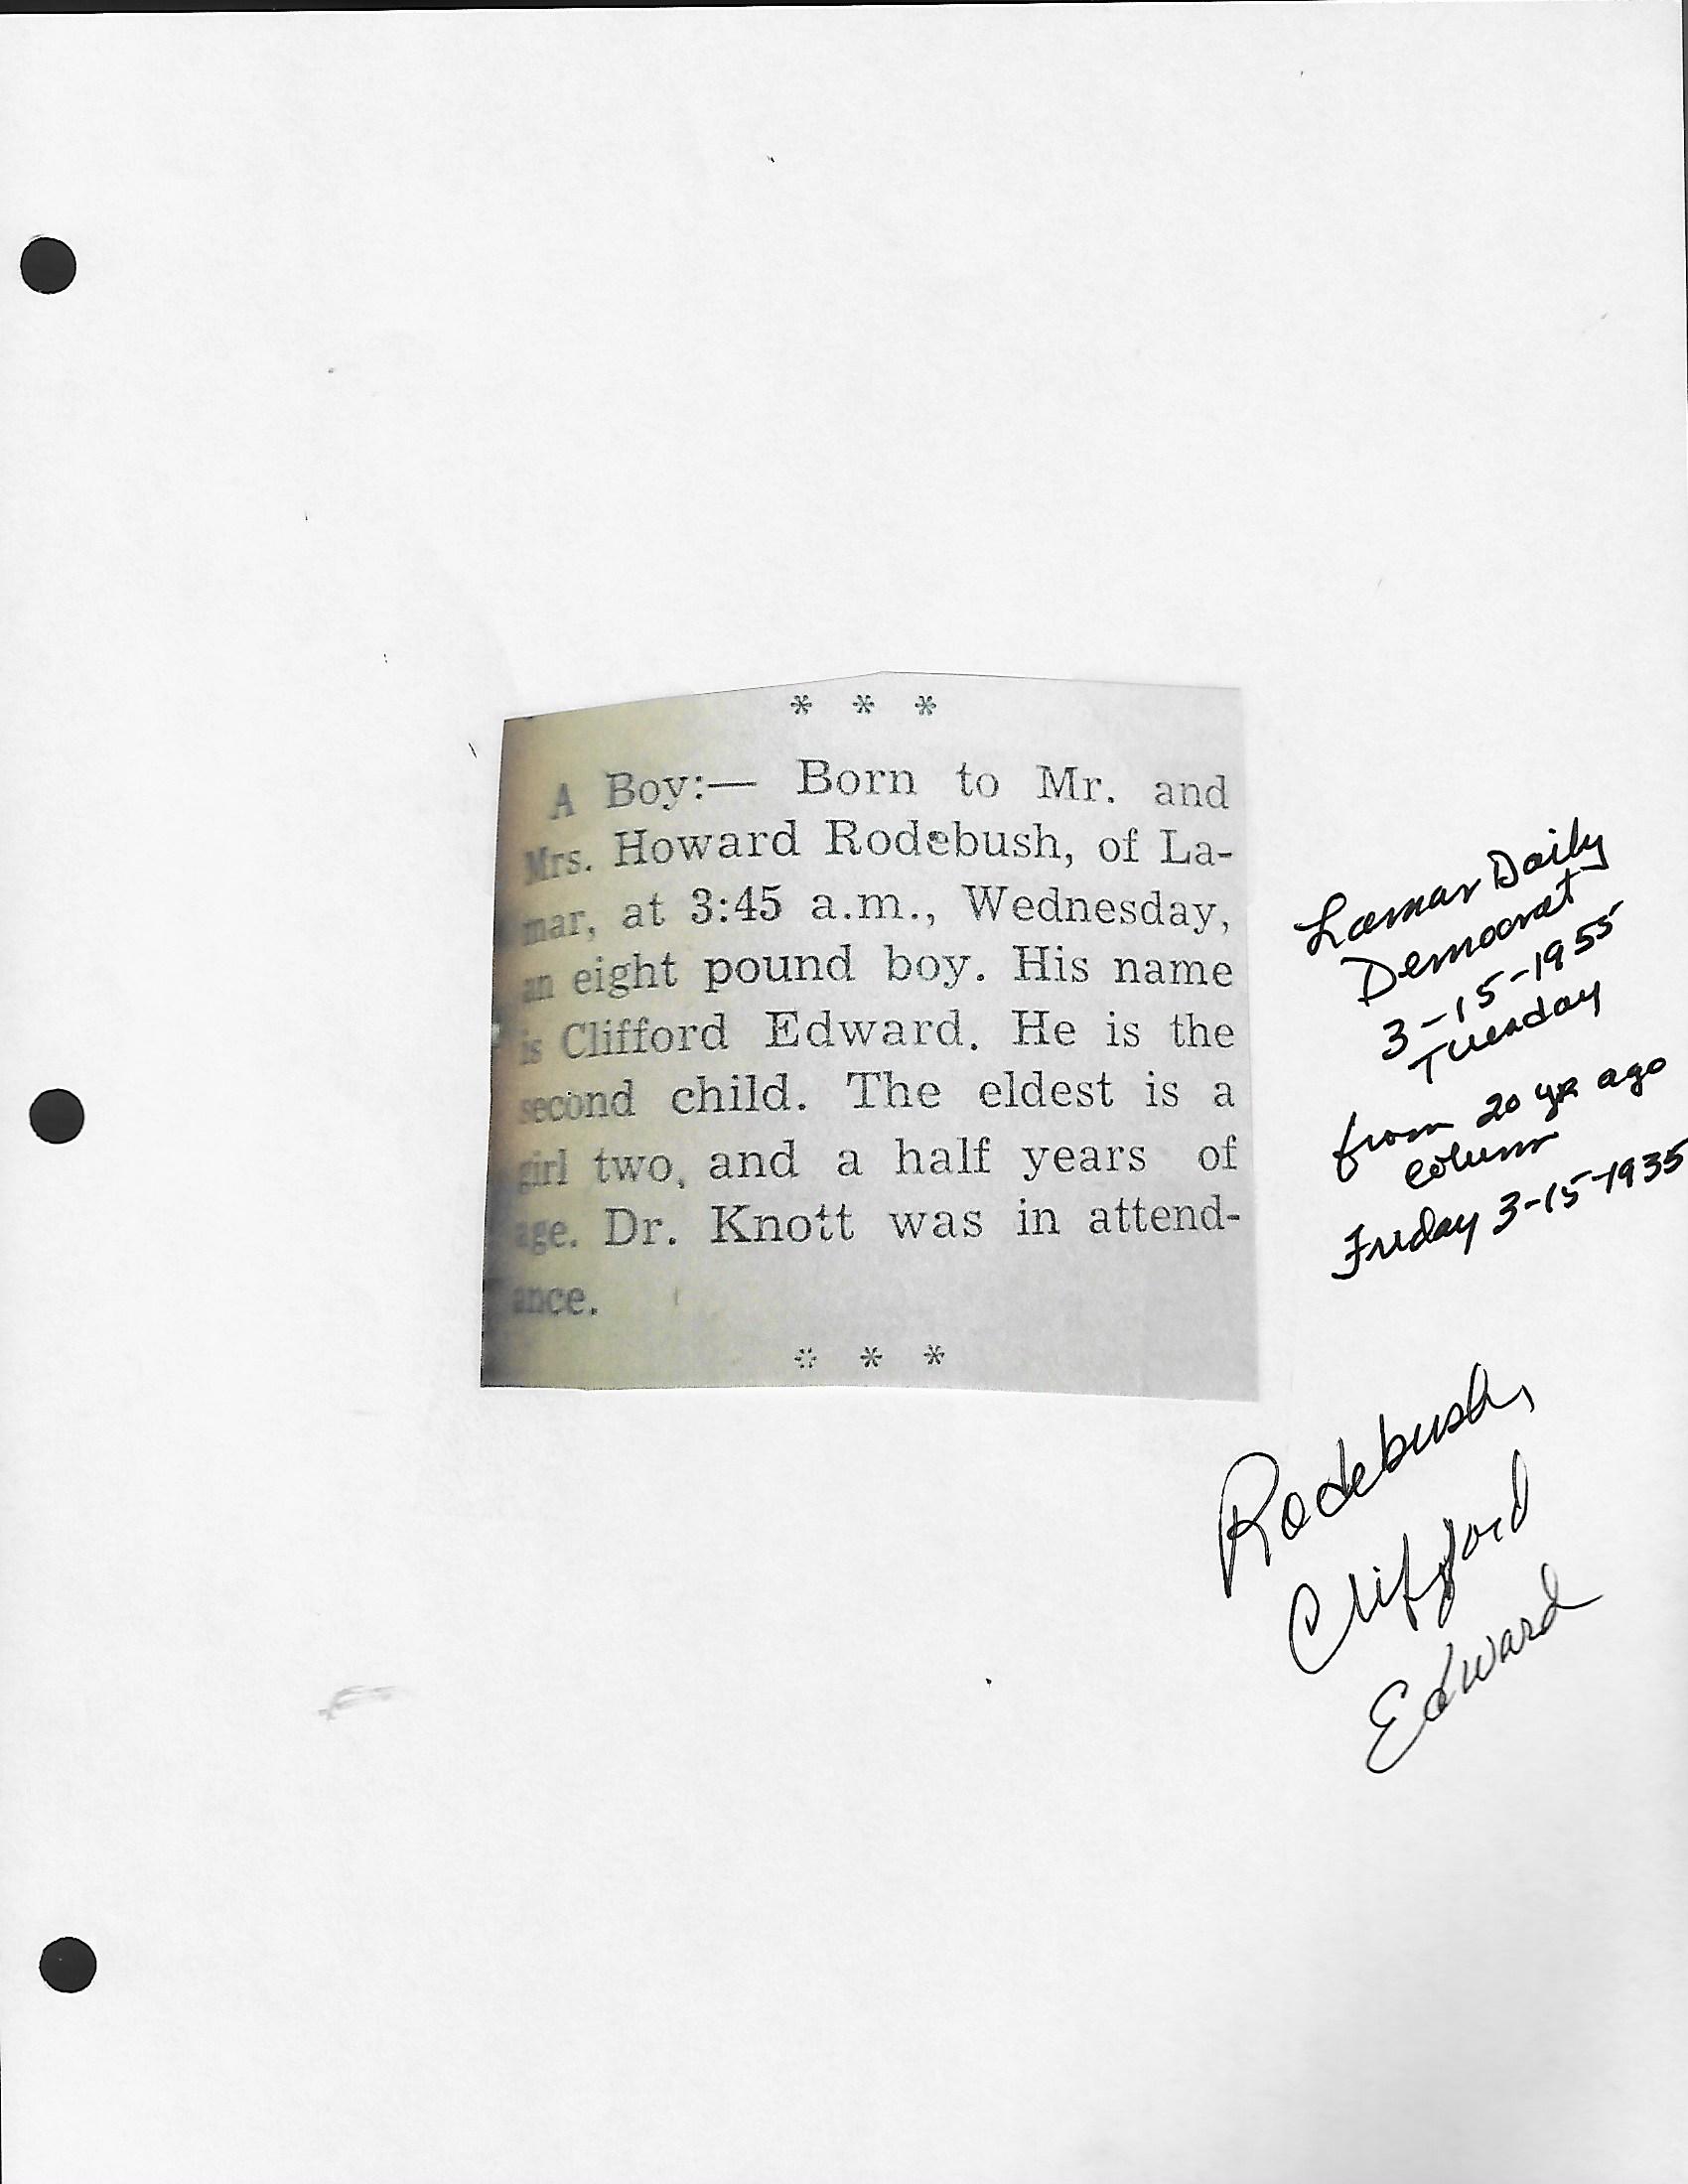 * * *
A Boy:— Born to Mr. and
Mrs. Howard Rodebush, of La-
mar, at 3:45 a.m., Wednesday,
an eight pound boy. His name
is Clifford Edward. He is the
second child. The eldest is a
girl two, and a half years of
age. Dr. Knott was in attend-
ance.
* * *
Lamar Daily
Democrat
3-15-1955
Tuesday
from 20 yr ago
column
Friday 3-15-1935
Rodebush,
Clifford
Edward